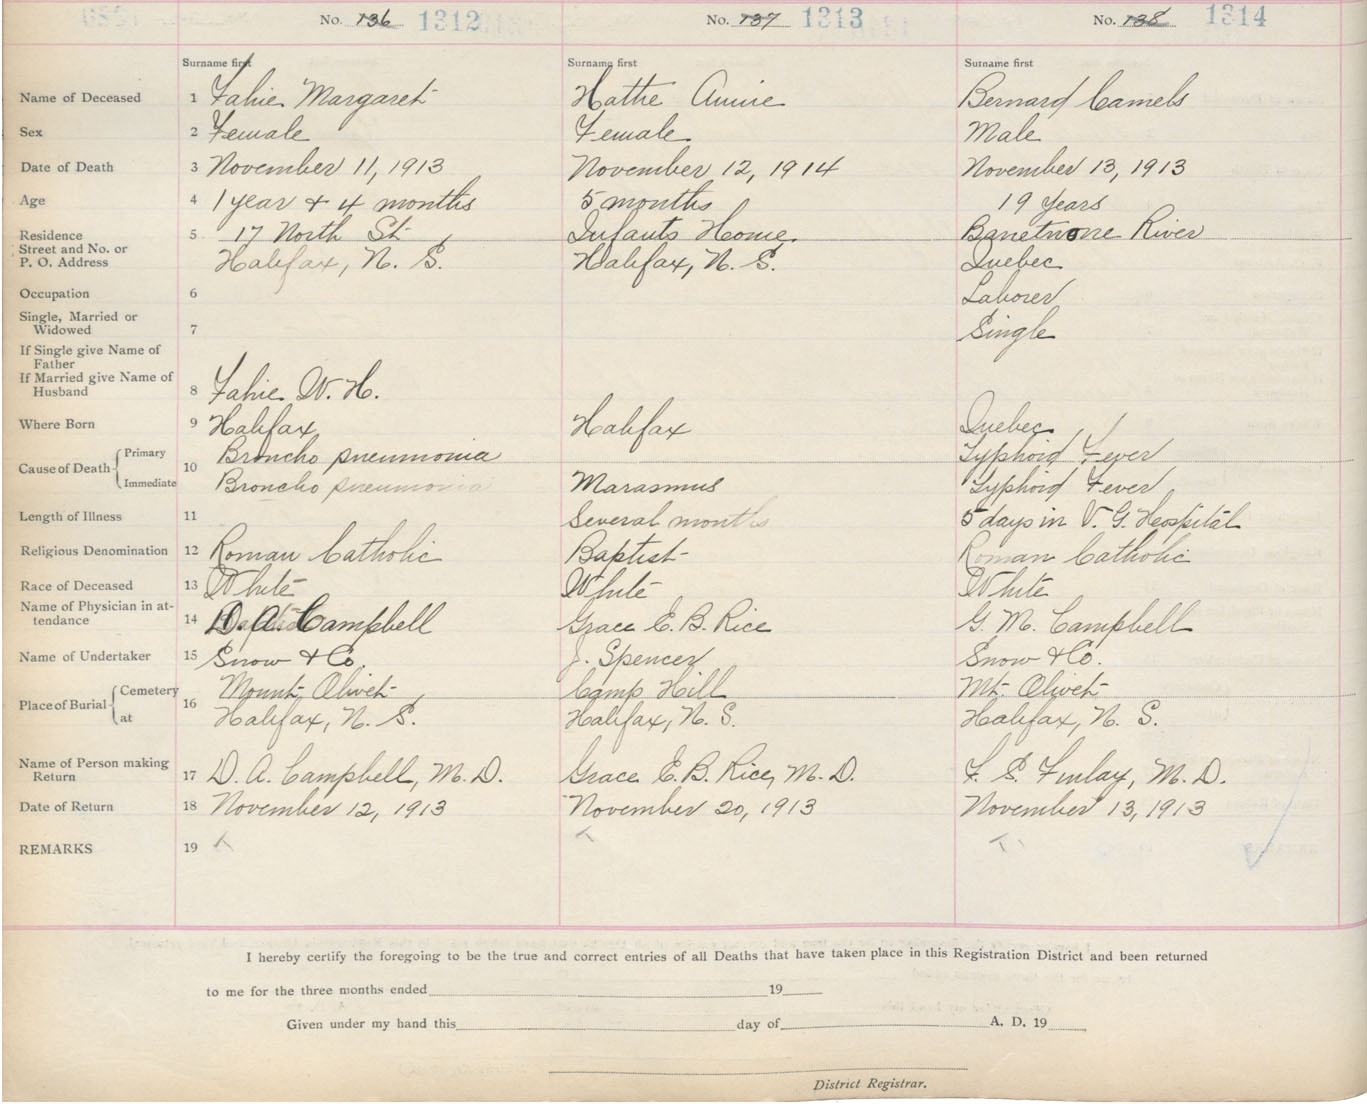 No. 136 1312 No. 137 1313 No. 138 1314
Surname first Surname first Surname first
Name of Deceased 1 Fahie Margaret Hathe Annie Bernard Camels
Sex 2 Female Female Male
Date of Death 3 November 11, 1913 November 12, 1914 November 13, 1913
Age 4 1 year + 4 months 5 months 19 years
Residence 5 17 North St. Infants Home River
Street and No. or
P. O. Address Halifax, N. S. Halifax, N. S. Quebec
Occupation 6 Laborer
Single, Married or
Widowed 7 Single
If Single give Name of
Father
If Married give Name of
Husband 8 Fahie W. H.
Where Born 9 Halifax Halifax Quebec
Cause of Death 10 Primary Broncho pneumonia Typhoid Fever
Immediate Broncho pneumonia Marasmus Typhoid Fever
Length of Illness 11 Several months 5 days in V. G. Hospital
Religious Denomination 12 Roman Catholic Baptist Roman Catholic
Race of Deceased 13 White White White
Name of Physician in at-
tendance 14 D. A. Campbell Grace E. B. Rice G. M. Campbell
Name of Undertaker 15 Snow & Co. J. Spencer Snow & Co.
Place of Burial 16 Cemetery Mount Olivet Camp Hill Mt. Olivet
at Halifax, N. S. Halifax, N. S. Halifax, N. S.
Name of Person making
Return 17 D. A. Campbell, M. D. Grace E. B. Rice, M. D. F. S. Finlay, M. D.
Date of Return 18 November 12, 1913 November 20, 1913 November 13, 1913
REMARKS 19
I hereby certify the foregoing to be the true and correct entries of all Deaths that have taken place in this Registration District and been returned
to me for the three months ended 19
Given under my hand this day of A. D. 19
District Registrar.